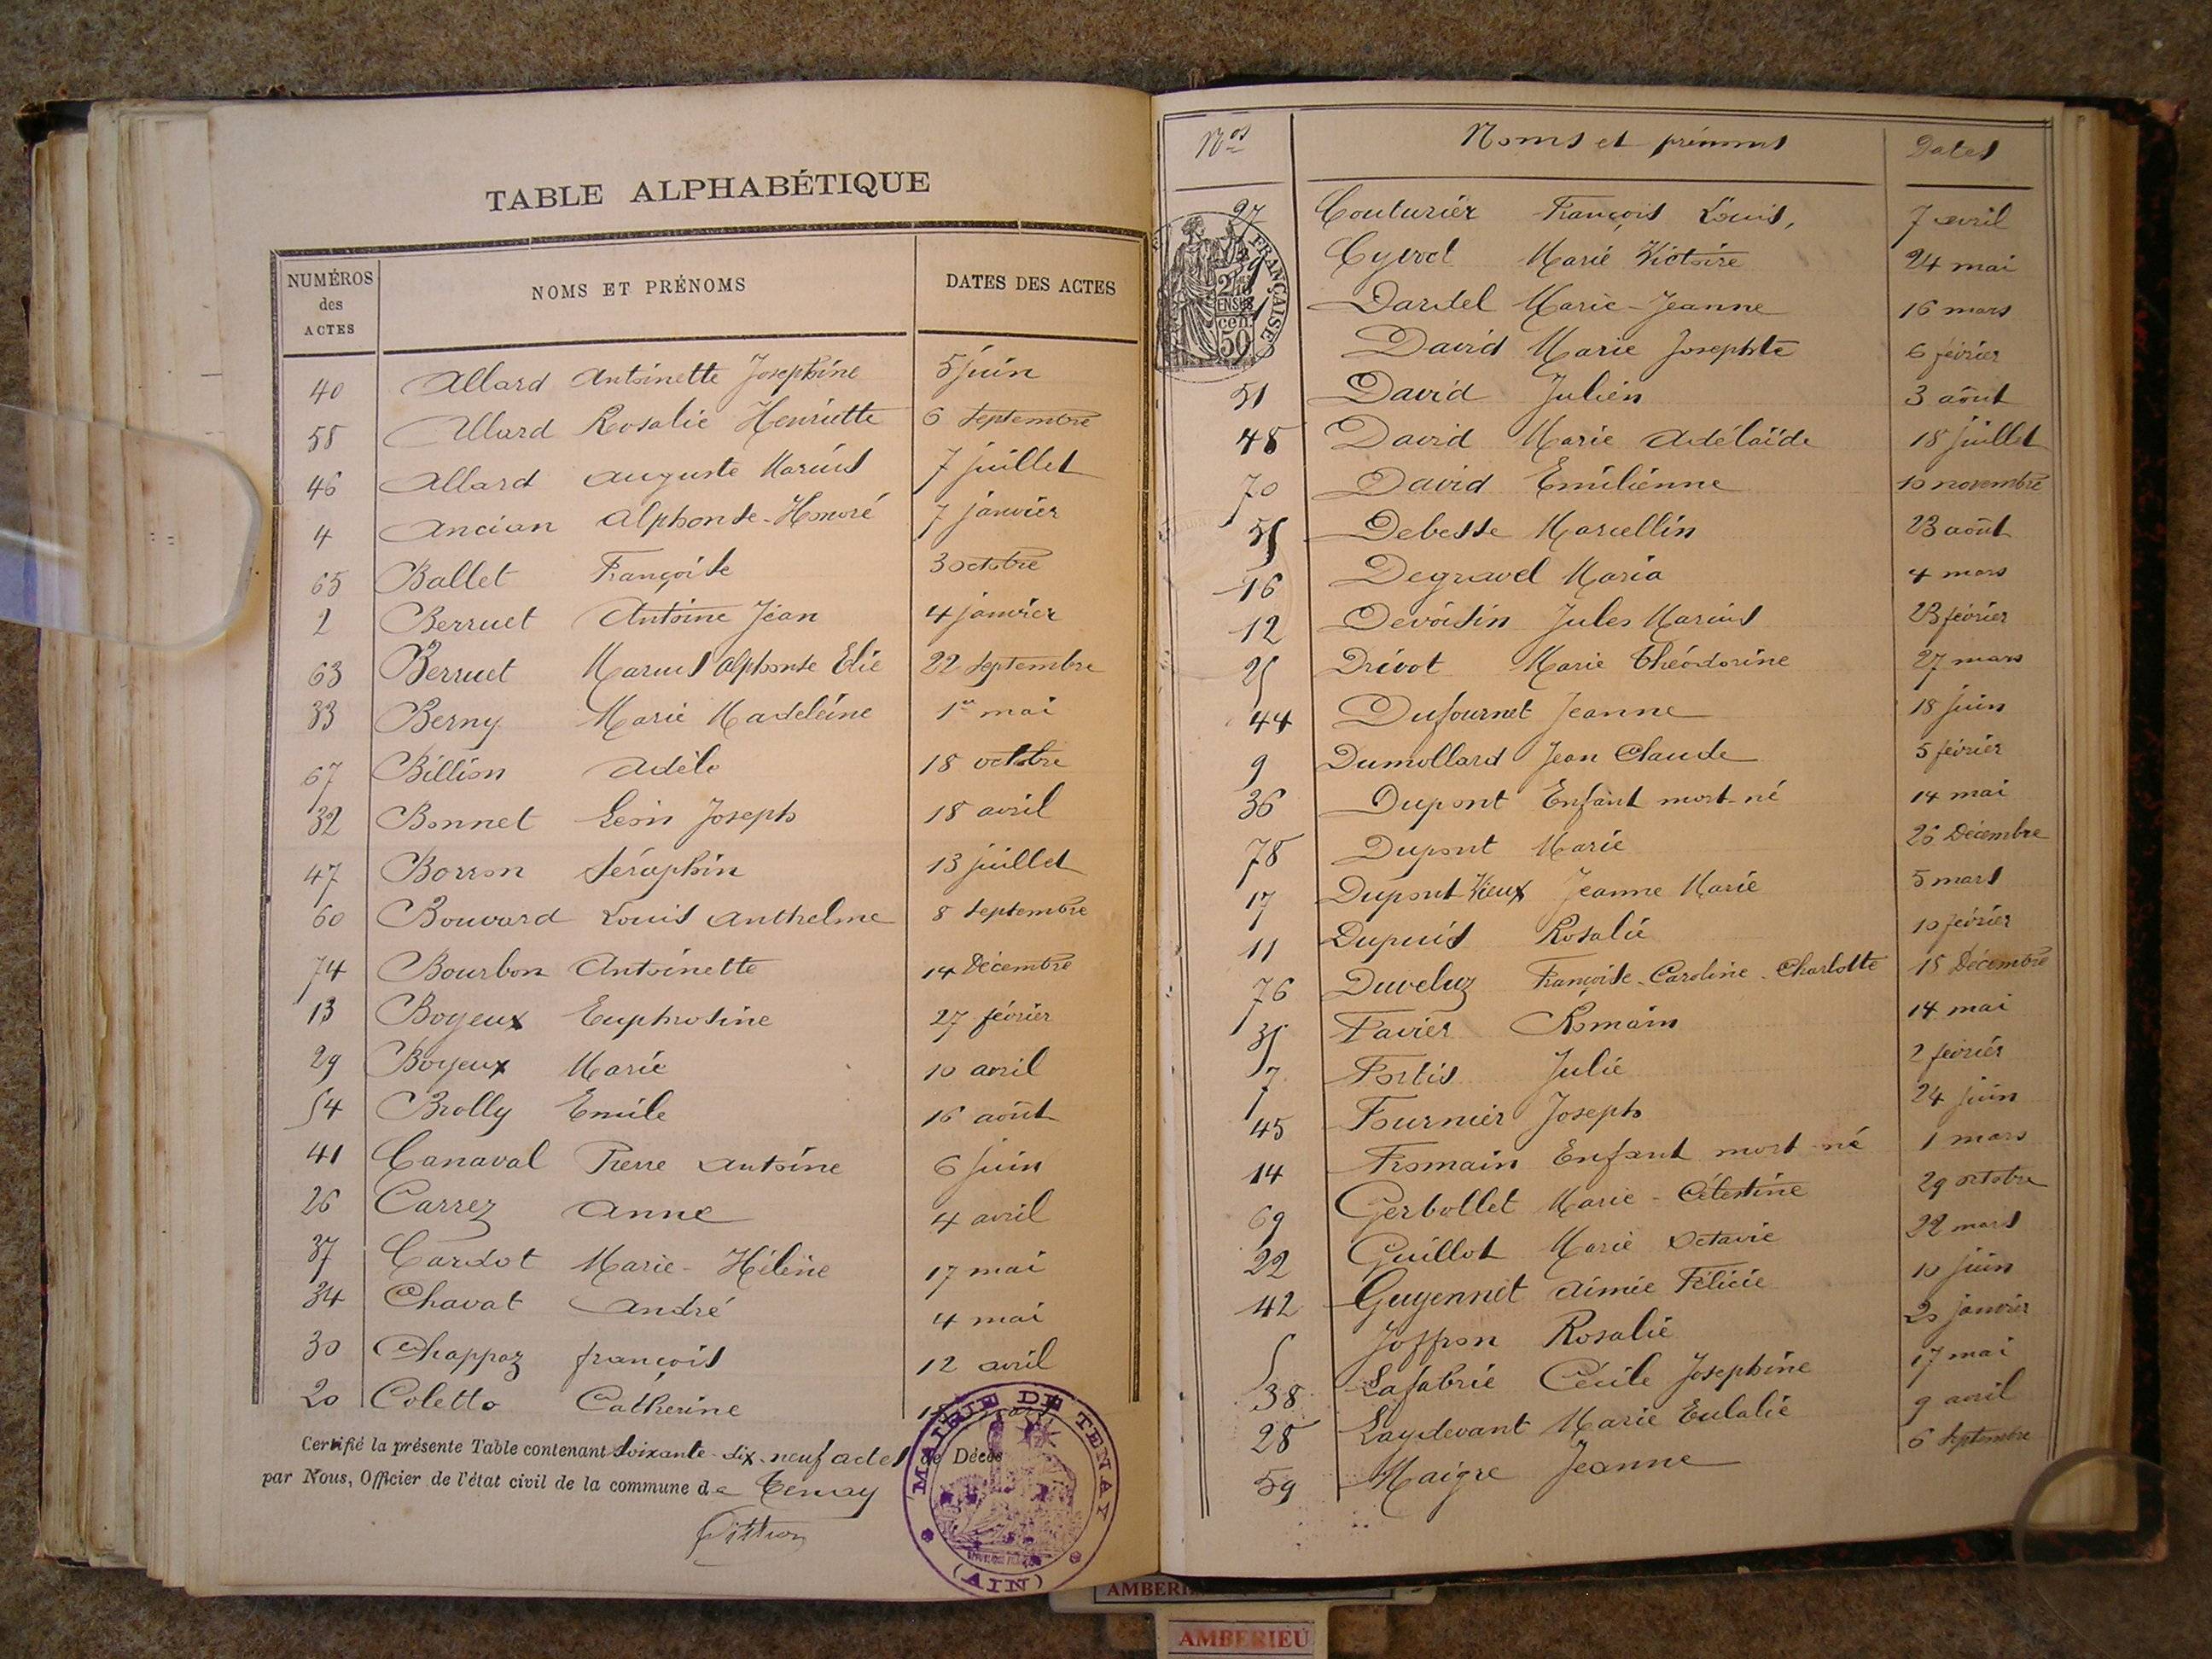 TABLE ALPHABÉTIQUE
NUMÉROS des ACTES NOMS ET PRÉNOMS DATES DES ACTES
40 Allard Antoinette Josephine 5 juin
58 Allard Rosalie Henriette 6 Septembre
46 Allard Auguste Marius 7 juillet
4 Ancian Alphonse-Honoré 7 janvier
65 Ballet Françoise 3 octobre
2 Berruet Antoine Jean 4 janvier
63 Berruet Marius Alphonse Elie 22 Septembre
33 Berny Marie Madeleine 1er mai
67 Billion Adèle 18 octobre
32 Bonnet Léon Joseph 18 avril
47 Borron Séraphin 13 juillet
60 Bouvard Louis Anthelme 8 Septembre
74 Bourbon Antoinette 14 Décembre
13 Boyeux Euphrosine 27 février
29 Boyeux Marie 10 avril
54 Brolly Emile 16 août
41 Canaval Pierre Antoine 6 juin
26 Carrez Anne 4 avril
37 Cardot Marie-Hélène 17 mai
34 Chavat André 4 mai
30 Chappaz françois 12 avril
20 Coletto Catherine mars
Certifié la présente Table contenant soixante-dix-neuf actes de Décès
par Nous, Officier de l'état civil de la commune de Tenay
MAIRIE DE TENAY
(AIN)
Nos Noms et prénoms Dates
27 Couturier François Louis, 7 avril
Marie Victoire 24 mai
Dardel Marie-Jeanne 16 mars
David Marie Josephte 6 février
51 David Julien 3 août
48 David Marie Adélaïde 18 juillet
70 David Emilienne 10 novembre
55 Debesse Marcellin 23 août
16 Degravel Maria 4 mars
12 Devoisin Jules Marius 23 février
25 Drivot Marie Théodorine 27 mars
44 Dufournet Jeanne 18 juin
9 Dumollard Jean Claude 5 février
36 Dupont Enfant mort-né 14 mai
78 Dupont Marie 26 Décembre
17 Dupont-Vieux Jeanne Marie 5 mars
11 Dupuis Rosalie 10 février
76 Duveluz Françoise-Caroline-Charlotte 18 Décembre
35 Favier Romain 14 mai
7 Fortis Julie 2 février
45 Fournier Joseph 24 juin
14 Fromain Enfant mort né 1 mars
69 Gerbollet Marie-Célestine 29 octobre
22 Guillot Marie Octavie 22 mars
42 Guyennet Aimée Félicie 10 juin
5 Joffron Rosalie 20 janvier
38 Lafabrie Cécile Josephine 17 mai
28 Laydevant Marie Eulalie 9 avril
59 Maigre Jeanne 6 Septembre
FRANÇAISE
cen.
50
AMBERIEU